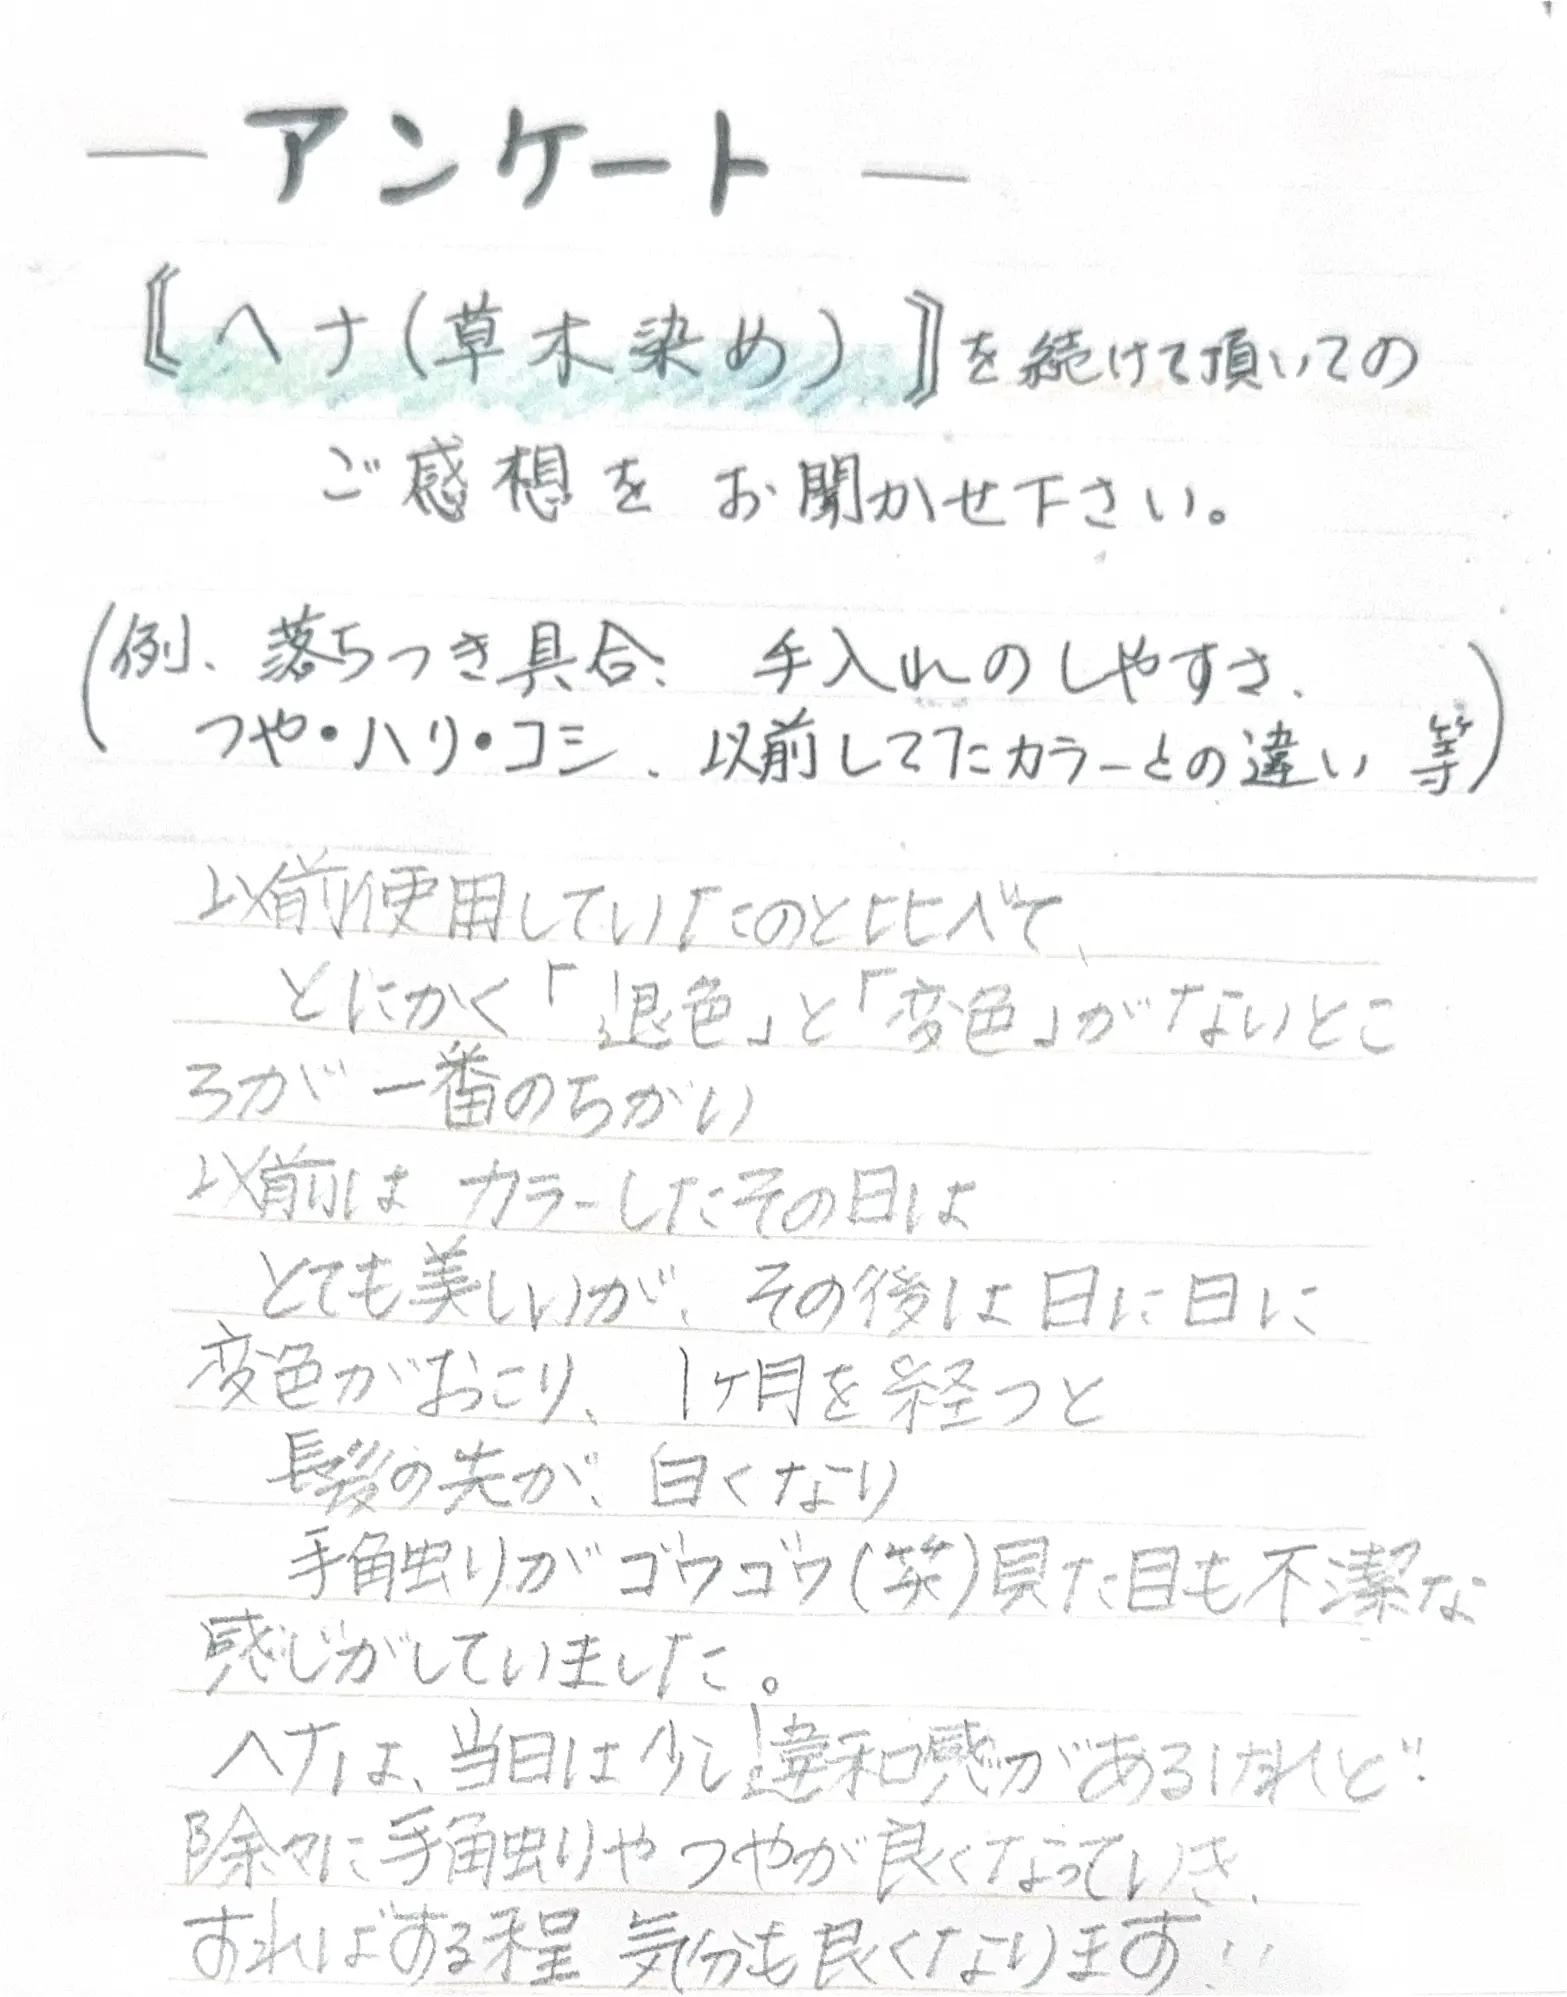 ― アンケート ―
《ヘナ(草木染め)》を続けて頂いての
ご感想をお聞かせ下さい。
(例、落ちつき具合、手入れのしやすさ、
つや・ハリ・コシ、以前してたカラーとの違い 等)
以前使用していたのと比べて、
とにかく「退色」と「変色」がないとこ
ろが一番のちがい
以前は カラーしたその日は
とても美しいが、その後は日に日に
変色がおこり、1ヶ月を経つと
長髪の先が、白くなり
手触りがゴワゴワ(笑)見た目も不潔な
感じがしていました。
ヘナは、当日は少し違和感があるけれど
除々に手触りやつやが良くなっていき、
すればする程 気分も良くなります!!